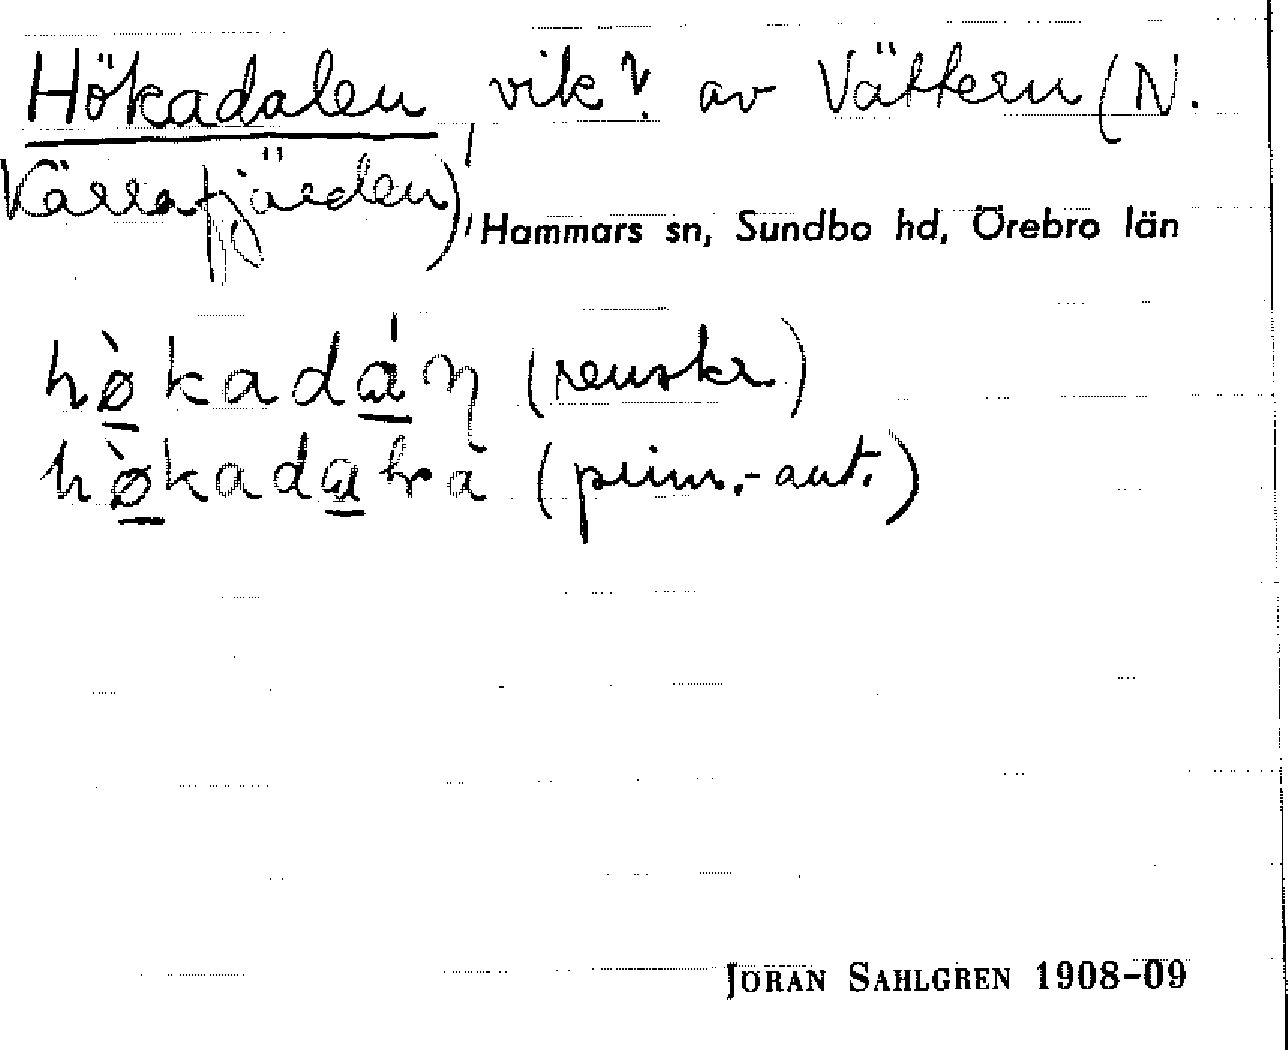 Hökadalen, vik? av Vättern (N.
Kärrafjärden), Hammars sn, Sundbo hd, Örebro län
hø̀kadáꞃ (renskr.)
hø̀kadaƚra (prim.-ant.)
JÖRAN SAHLGREN 1908-09